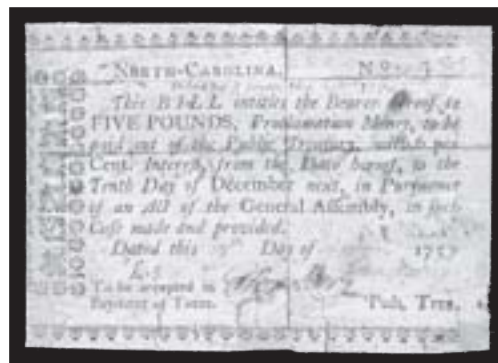 NORTH-CAROLINA. No.
This BILL entitles the Bearer hereof to
FIVE POUNDS, Proclamation Money, to be
paid out of the Public Treasury, with 6 per
Cent. Interest, from the Date hereof, to the
Tenth Day of December next, in Pursuance
of an Act of the General Assembly, in such
Case made and provided.
Dated this Day of 1757
£.5
To be accepted in
Payment of Taxes. Pub. Trea.